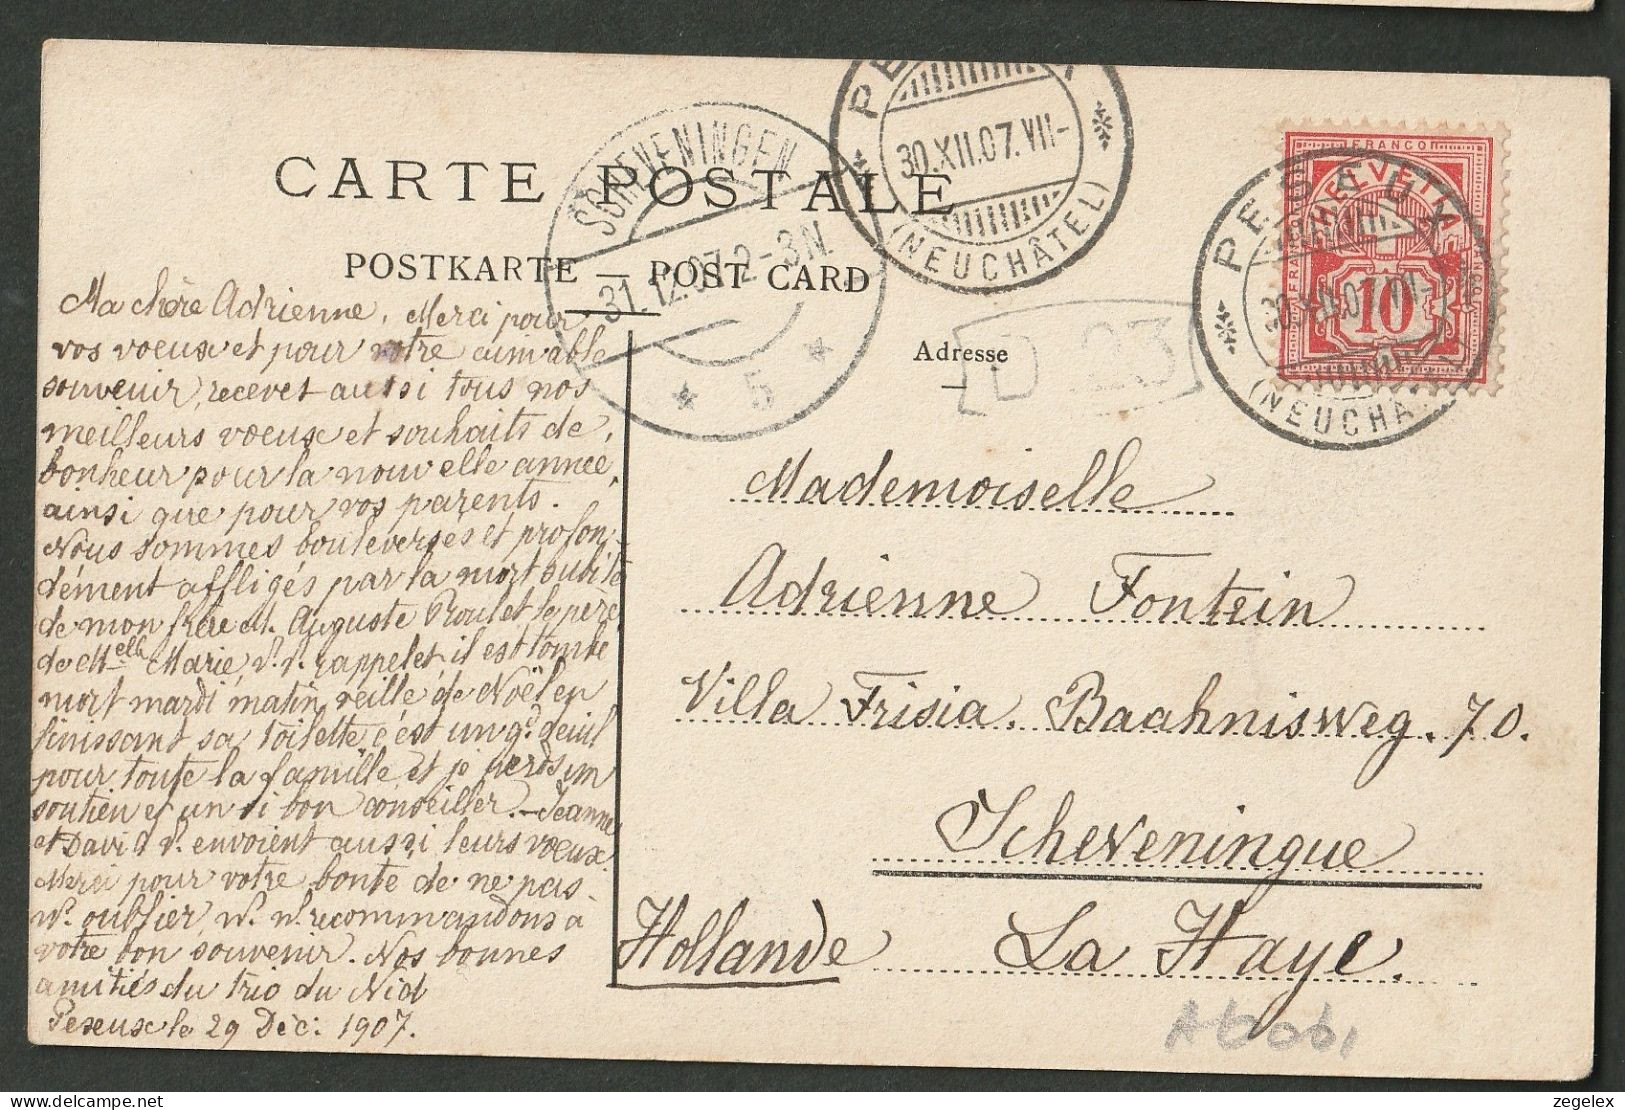 CARTE POSTALE
POSTKARTE — POST CARD
Adresse
SCHEVENINGEN
31.12.07.2-3N.
* 5 *
30.XII.07.VII-
(NEUCHÂTEL)
D 23
FRANCO
HELVETIA
10
PESEUX
(NEUCHÂ
Ma chère Adrienne, Merci pour
vos voeux et pour votre aimable
souvenir, recevet aussi tous nos
meilleurs voeux et souhaits de
bonheur pour la nouvelle année,
ainsi que pour vos parents.
Nous sommes bouleversés et profon-
dément affligés par la mort subite
de mon frère M. Auguste Roulet le père
de Melle Marie, v. v. rappelet il est tombé
mort mardi matin veille de Noël en
finissant sa toilette, c'est un gd deuil
pour toute la famille et je perds un
soutien et un si bon conseiller. – Jeanne
et David v. envoient aussi leurs voeux.
Merci pour votre bonté de ne pas
n. oublier, n. n. recommandons à
votre bon souvenir. Nos bonnes
amitiés du trio du Nid
Peseux le 29 Déc: 1907.
Mademoiselle
Adrienne Fontein
Villa Frisia. Baahnisweg. 70.
Scheveningue
Hollande La Haye.
zegelex